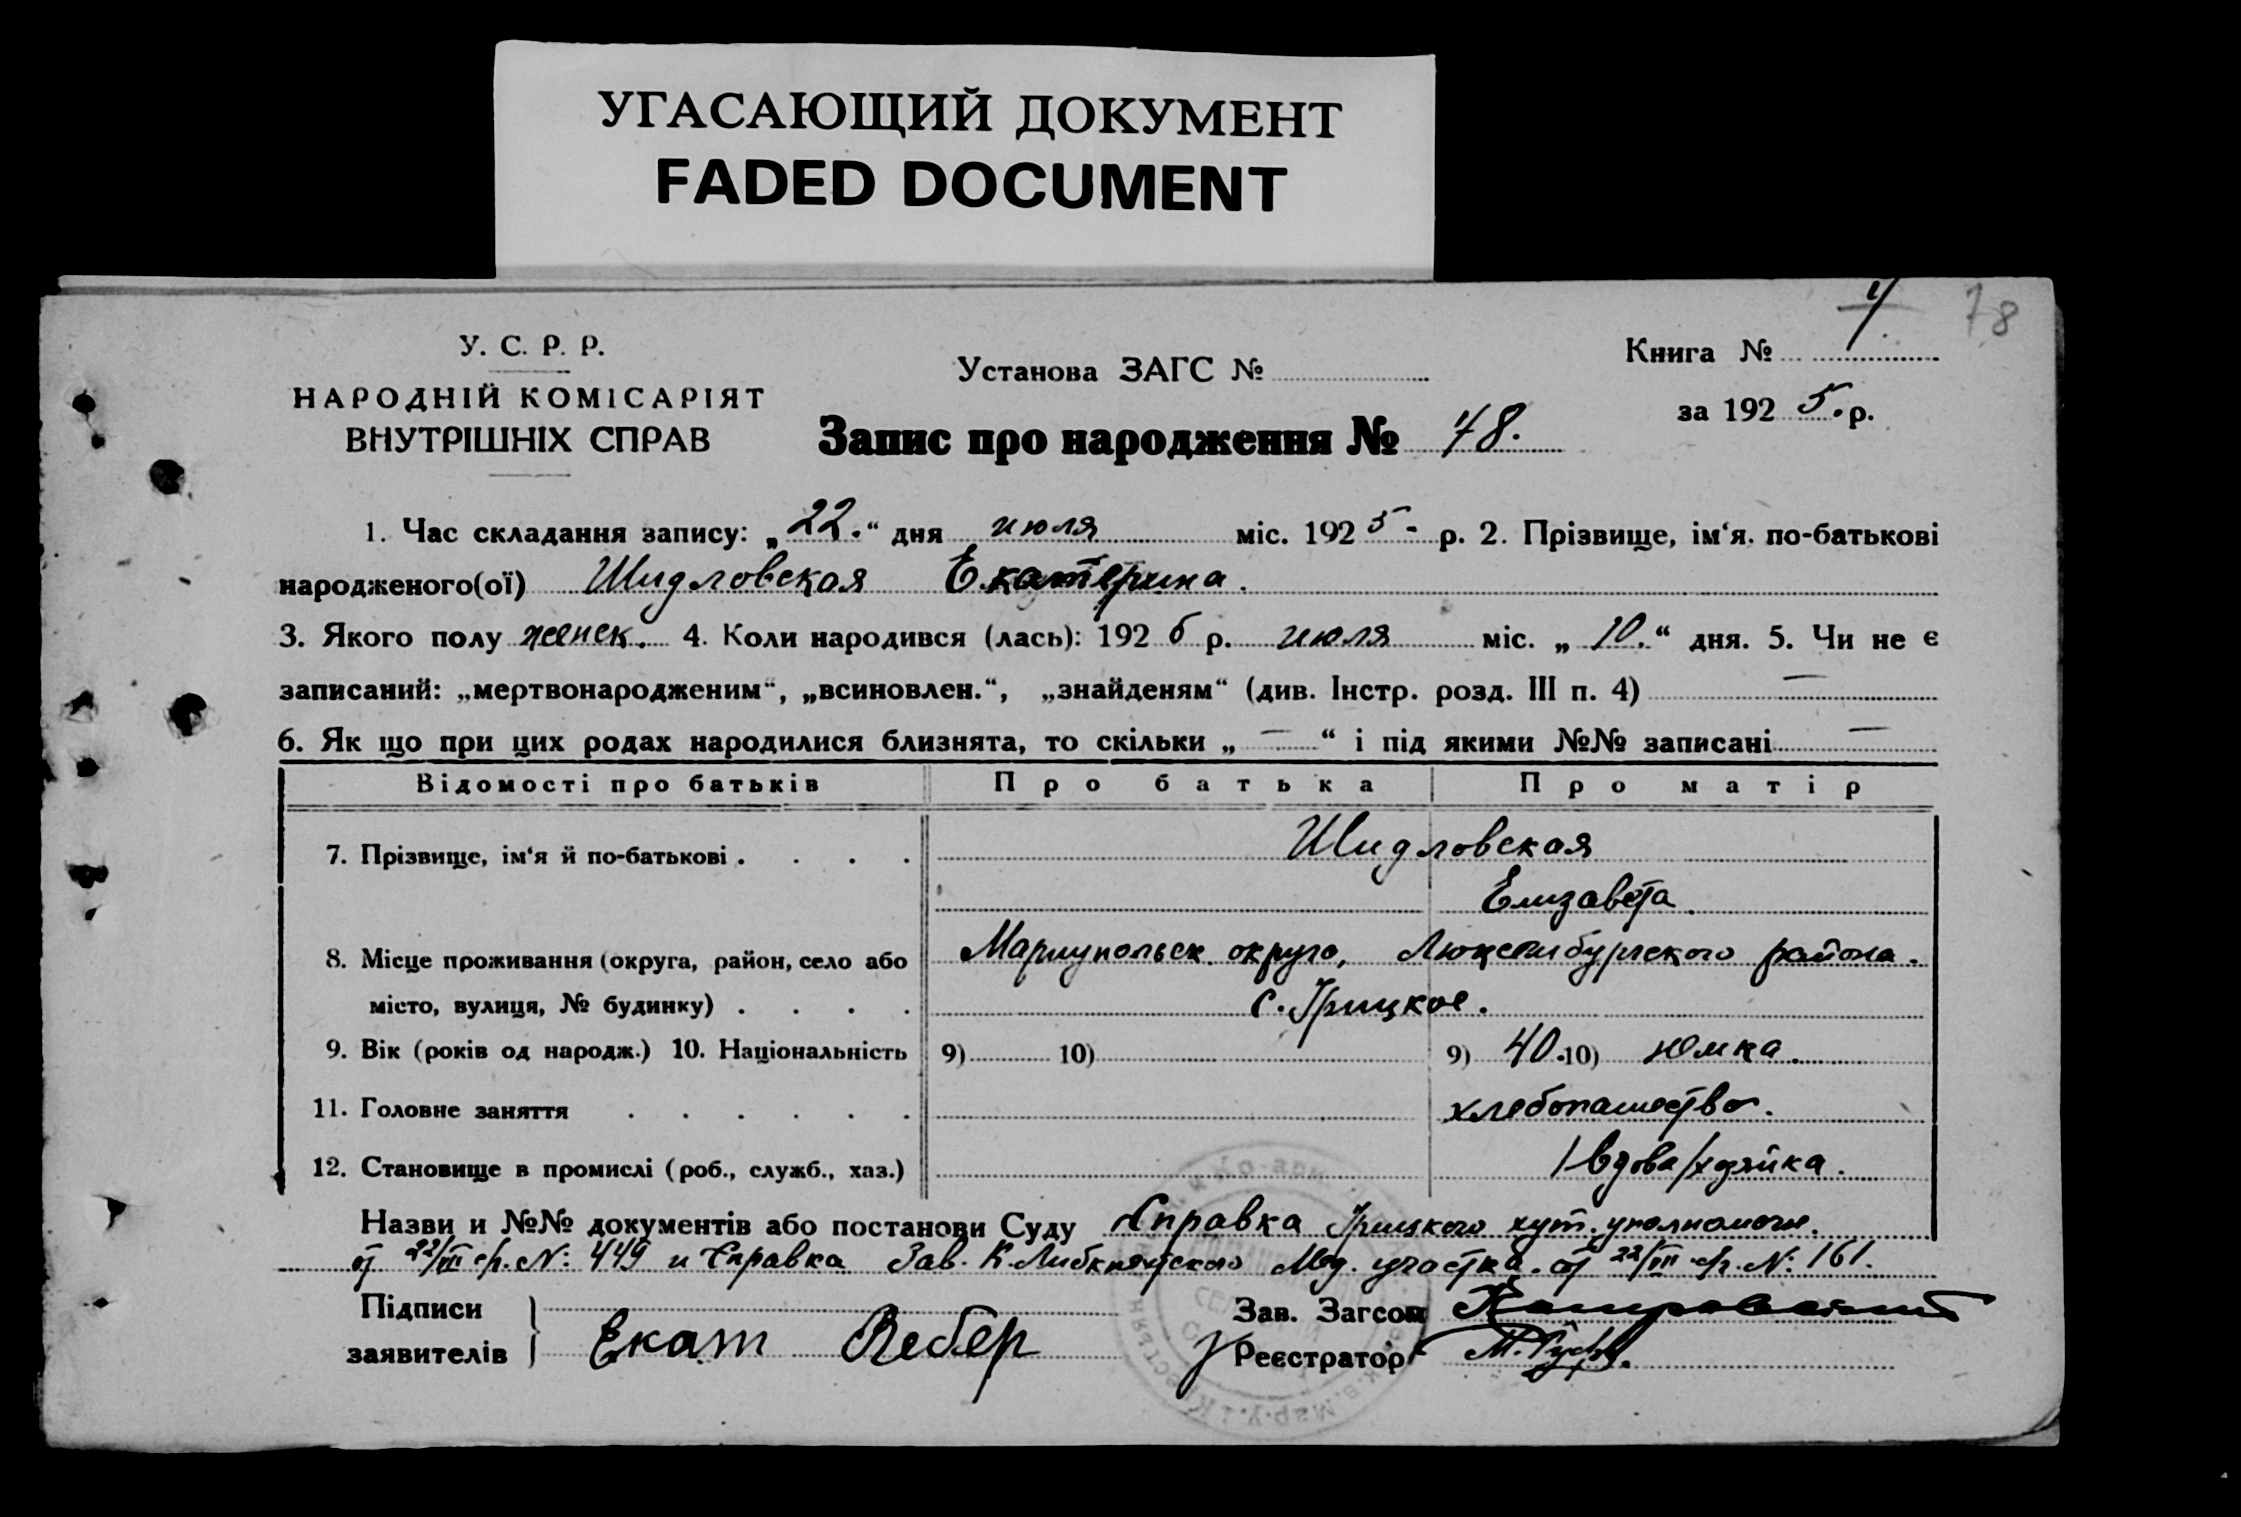 УГАСАЮЩИЙ ДОКУМЕНТ
FADED DOCUMENT
У. С. Р. Р.
НАРОДНІЙ КОМІСАРІЯТ
ВНУТРІШНІХ СПРАВ
Установа ЗАГС №
Книга №
78
за 192 5. р.
Запис про народження № 48.
1. Час складання запису: „ 22. “ дня июля міс. 192 5 - р. 2. Прізвище, ім‘я. по-батькові
народженого(ої) Шидловская Екатерина.
3. Якого полу женск. 4. Коли народився (лась): 192 р. июля міс. „ 10. “ дня. 5. Чи не є
записаний: „мертвонародженим“, „всиновлен.“, „знайденям“ (див. Інстр. розд. III п. 4) —
6. Як що при цих родах народилися близнята, то скільки „ — “ і під якими №№ записані —
Відомості про батьків Про батька Про матір
7. Прізвище, ім‘я й по-батькові . . . . Шидловская
Елизавета.
8. Місце проживання (округа, район, село або Мариупольск. округа, Люксембургского района.
місто, вулиця, № будинку) . . . . с. Грицкое.
9. Вік (років од народж.) 10. Національність 9) 10) 9) 40. 10) немка.
11. Головне заняття . . . . . . хлебопашество.
12. Становище в промислі (роб., служб., хаз.) /вдова/ хозяйка.
Назви и №№ документів або постанови Суду Справка Грицкого хут. уполномоч.
от 22/VII с/г. №: 449 и Справка Зав. К. Либкнехтского Мед. участка. от 22/VII с/г. №: 161.
Підписи
заявителів Екат Вебер
Зав. Загсом
Реєстратор